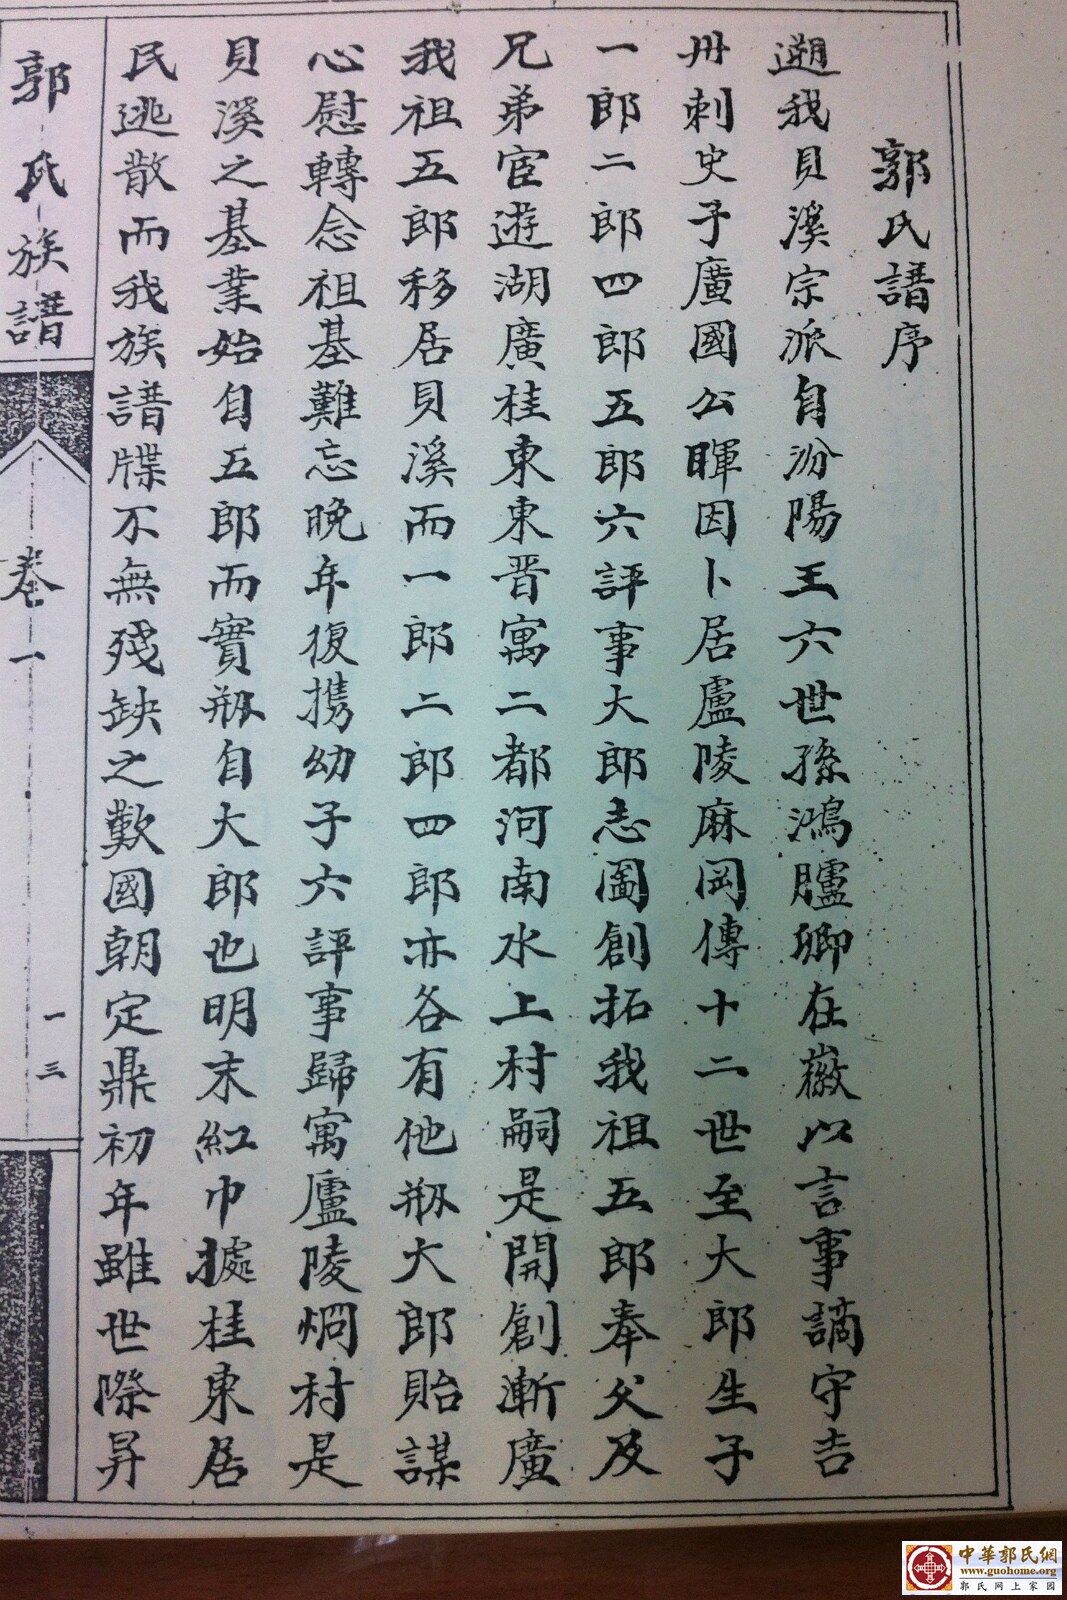 郭氏譜序
遡我貝溪宗派自汾陽王六世孫鴻臚卿在徽以言事謫守吉
州刺史子廣國公暉因卜居廬陵麻岡傳十二世至大郎生子
一郎二郎四郎五郎六評事大郎志圖創拓我祖五郎奉父及
兄弟宦遊湖廣桂東東晋寓二都河南水上村嗣是開創漸廣
我祖五郎移居貝溪而一郎二郎四郎亦各有他剏大郎貽謀
心慰轉念祖基難忘晚年復携幼子六評事歸寓廬陵烱村是
貝溪之基業始自五郎而實剏自大郎也明末紅巾據桂東居
民逃散而我族譜牒不無殘缺之歎國朝定鼎初年雖世際昇
郭氏族譜
卷一
一三
中華郭氏網
www.guohome.org
郭氏网上家园